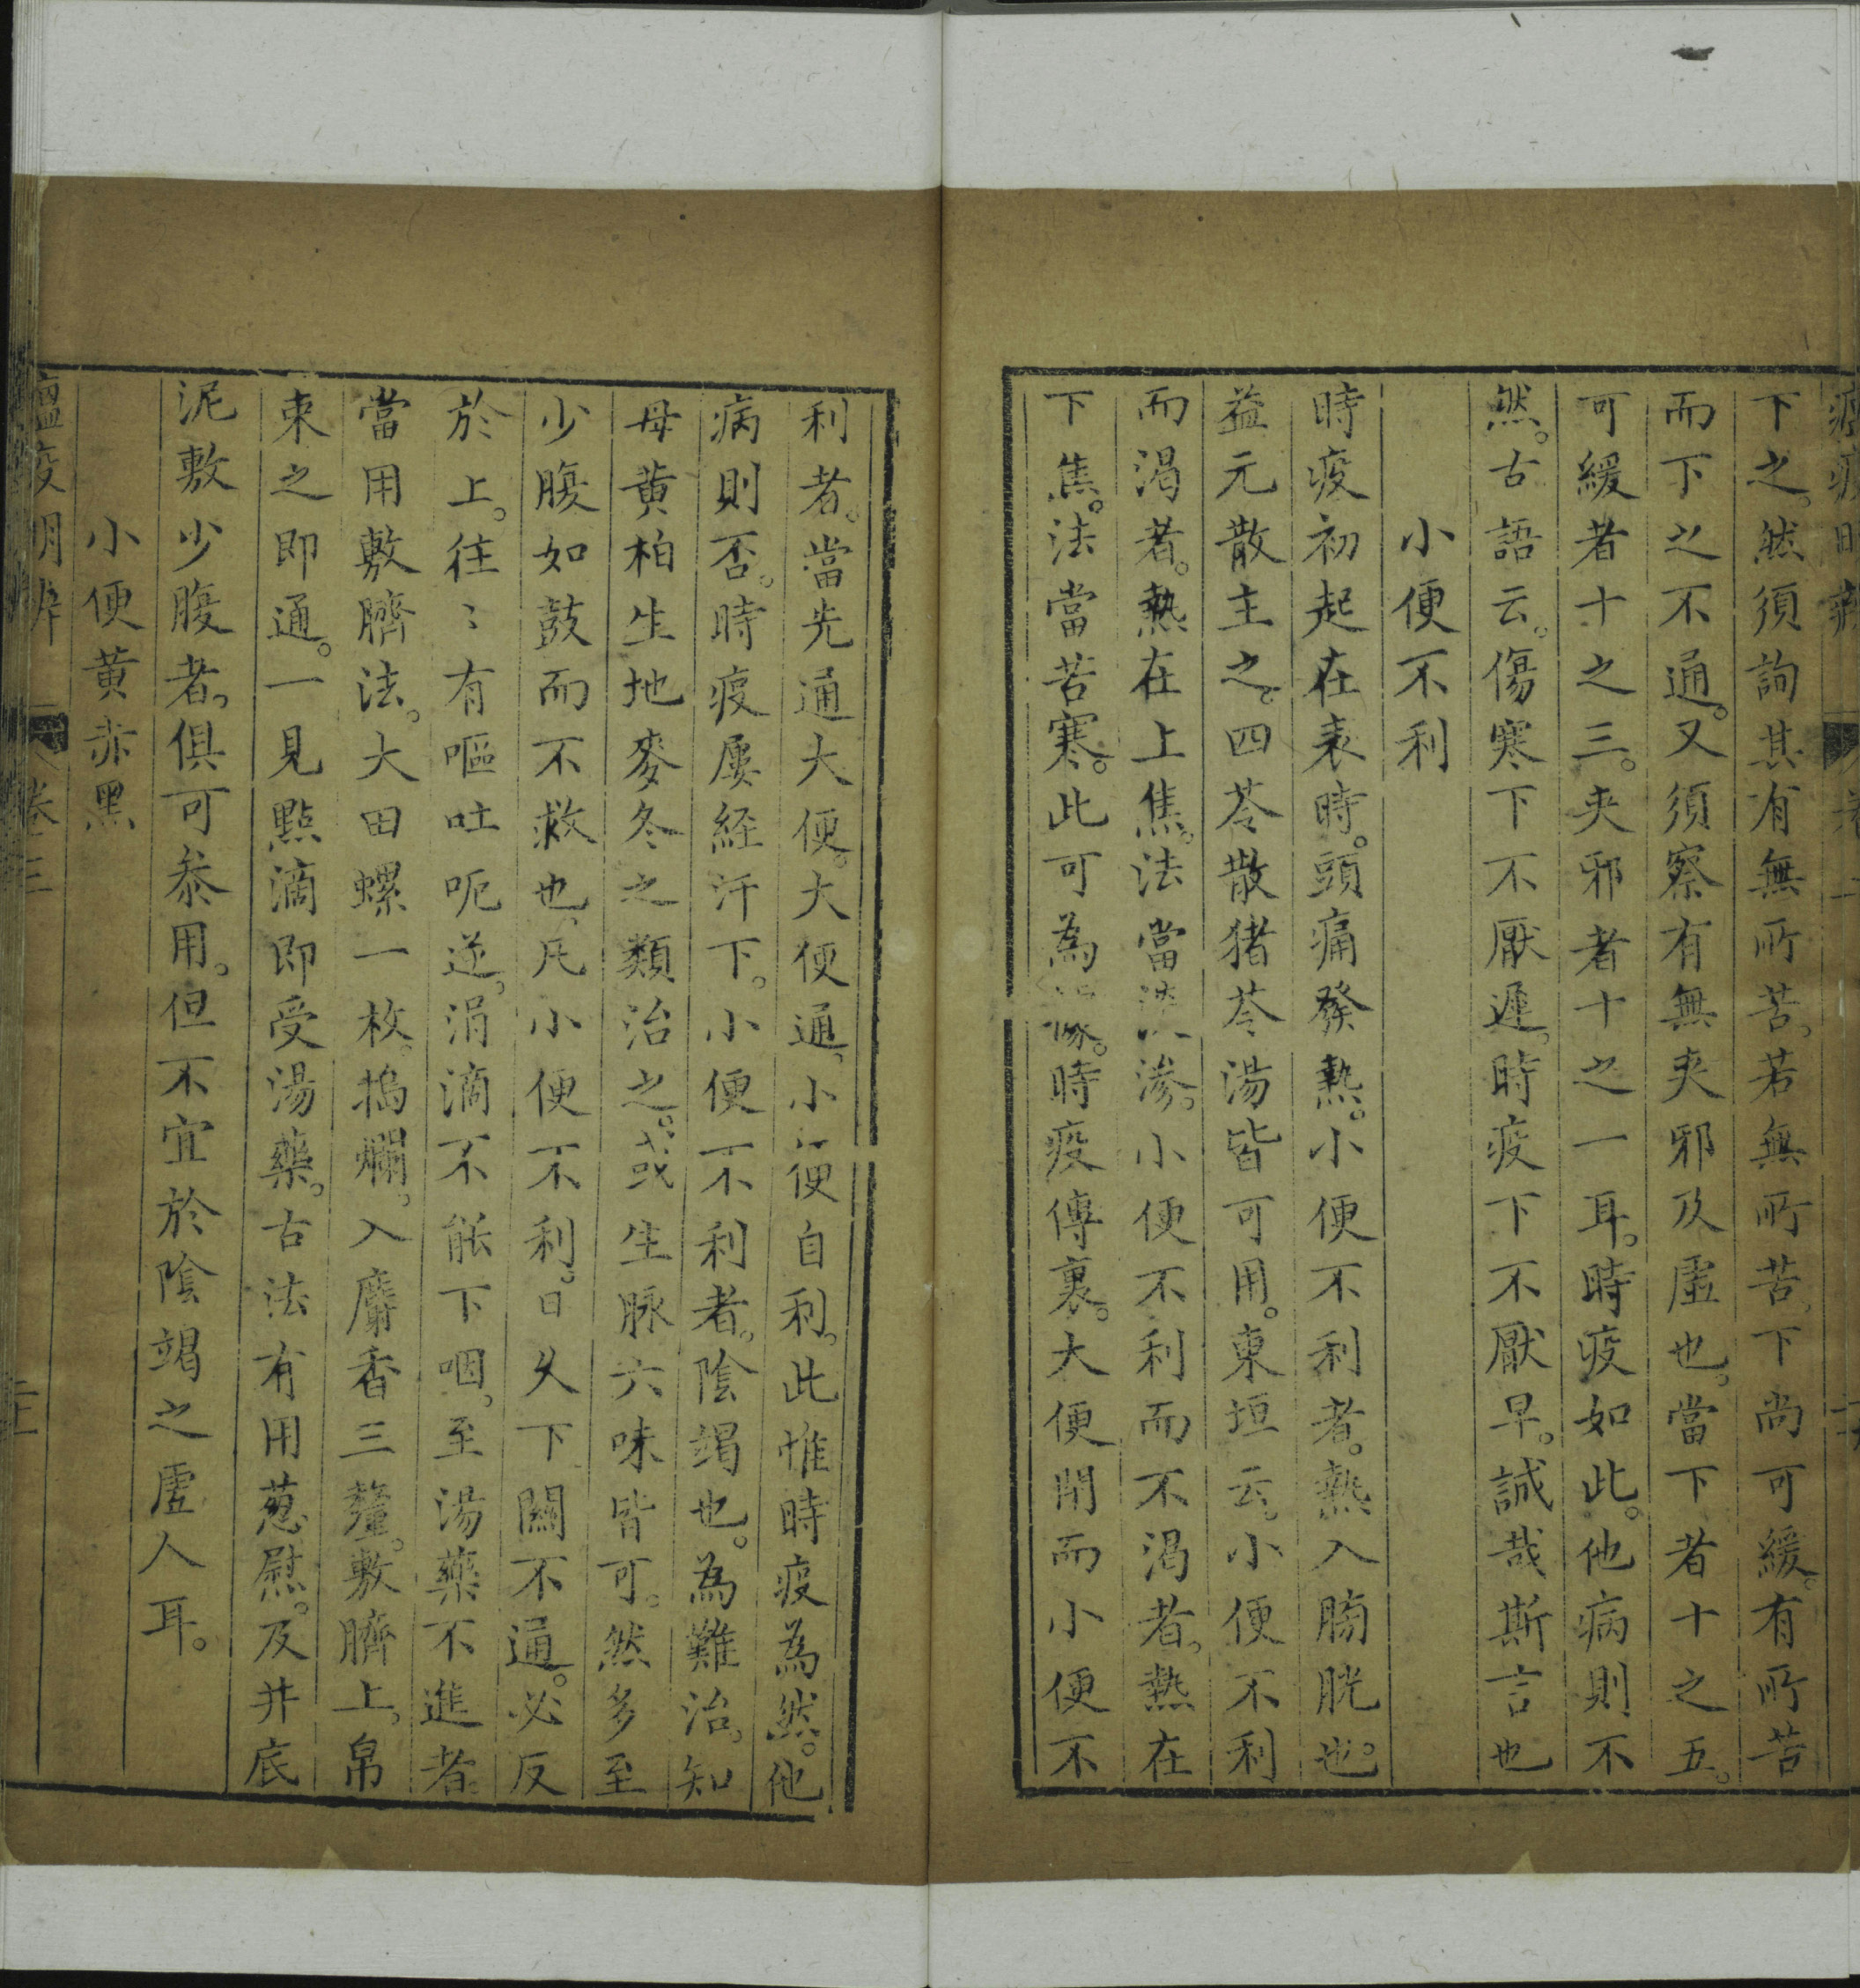 下之。然須詢其有無所苦。若無所苦。下尚可緩。有所苦
而下之不通。又須察有無夾邪及虛也。當下者十之五。
可緩者十之三。夾邪者十之一耳。時疫如此。他病則不
然。古語云。傷寒下不厭遲。時疫下不厭早。誠哉斯言也
小便不利
時疫初起在表時。頭痛發熱。小便不利者。熱入膀胱也。
益元散主之。四苓散猪苓湯皆可用。東垣云。小便不利
而渴者。熱在上焦。法當淡滲。小便不利而不渴者。熱在
下焦。法當苦寒。此可為時疫傳裏。大便閉而小便不
利者。當先通大便。大便通。小便自利。此惟時疫為然。他
病則否。時疫屢経汗下。小便不利者。陰竭也。為難治。知
母黄柏生地麥冬之類治之。或生脉六味皆可。然多至
少腹如鼓而不救也。凡小便不利。日久下關不通。必反
於上。往〻有嘔吐呃逆。涓滴不能下咽。至湯藥不進者。
當用敷臍法。大田螺一枚。搗爛。入麝香三釐。敷臍上。帛
束之即通。一見點滴即受湯藥。古法有用葱慰。及井底
泥敷少腹者。俱可叅用。但不宜於陰竭之虛人耳。
小便黄赤黑
瘟疫明辨 卷三